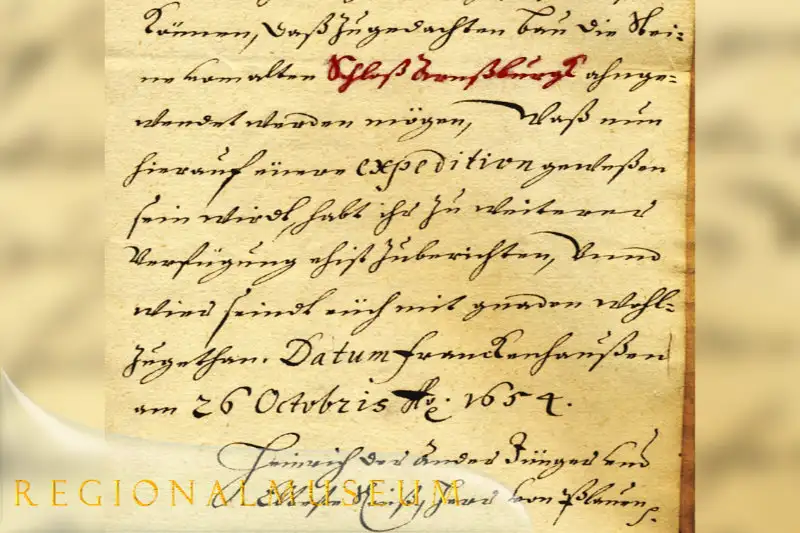 Können, daß zugedachten bau die Stei-
ne vom alten Schloß Arnßburgk ahnge-
wendet werden mögen, Waß nun
hierauf eüere expedition geweßen
sein wirdt, habt ihr zu weiterer
Verfügung ehist zuberichten, Vnnd
wier seindt eüch mit gnaden wohl-
zugethan. Datum Franckenhaußen
am 26 Octobris Ao. 1654.
Heinrich der Ander Jünger vnd
Elteste Reuß, Herr von Plauen
REGIONALMUSEUM